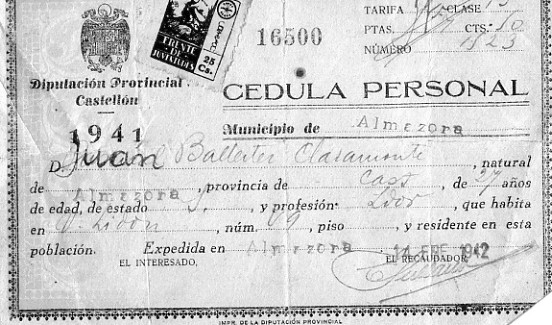 TARIFA CLASE 13
PTAS. CTS. 50
16500
NÚMERO 1823
FRENTE
DE
JUVENTUDES
25
Cs.
Diputación Provincial
Castellón
CEDULA PERSONAL
1941
Municipio de Almazora
D. Juan Ballester Claramonte, natural
de Almazora, provincia de Cass, de 27 años
de edad, de estado S., y profesión, que habita
en, núm. 69, piso y residente en esta
población. Expedida en Almazora 14 ENE 1942
EL INTERESADO, EL RECAUDADOR
IMPR. DE LA DIPUTACIÓN PROVINCIAL